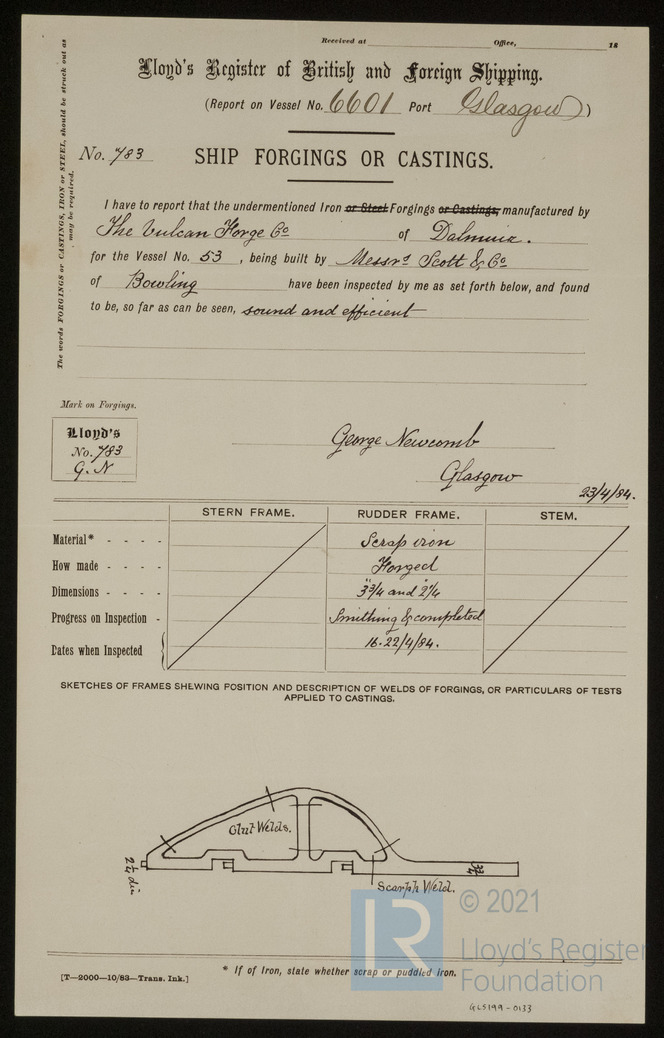 Received at Office, 18
Lloyd's Register of British and Foreign Shipping.
(Report on Vessel No. 6601 Port Glasgow)
No. 783 SHIP FORGINGS OR CASTINGS.
The words FORGINGS or CASTINGS, IRON or STEEL, should be struck out as
may be required.
I have to report that the undermentioned Iron or Steel Forgings or Castings, manufactured by
The Vulcan Forge Co of Dalmuir.
for the Vessel No. 53, being built by Messrs Scott & Co
of Bowling have been inspected by me as set forth below, and found
to be, so far as can be seen, sound and efficient
Mark on Forgings.
Lloyd's
No. 783
G. N
George Newcomb
Glasgow
23/4/84.
STERN FRAME. RUDDER FRAME. STEM.
Material* - - - - Scrap iron
How made - - - - Forged
Dimensions - - - - 3¾" and 2¼"
Progress on Inspection - Smithing & completed
Dates when Inspected 16-22/4/84.
SKETCHES OF FRAMES SHEWING POSITION AND DESCRIPTION OF WELDS OF FORGINGS, OR PARTICULARS OF TESTS
APPLIED TO CASTINGS.
Glut Welds.
2¼ dia
3¾
Scarph Weld.
* If of Iron, state whether scrap or puddled iron.
[T—2000—10/83—Trans. Ink.]
LR
© 2021
Lloyd's Register
Foundation
GLS199-0133